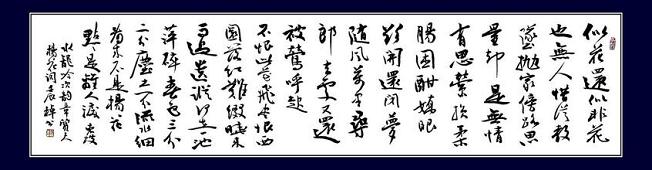 似花還似非花
也無人惜從教
墜拋家傍路思
量卻是無情
有思縈損柔
腸困酣嬌眼
欲開還閉夢
隨風萬里尋
郎去處又還
被鶯呼起
不恨此花飛盡恨西
園落紅難綴曉來
雨過遺蹤何在一池
萍碎春色三分
二分塵土一分流水細
看來不是楊花
點點是離人淚
水龍吟次韻章質夫
楊花詞